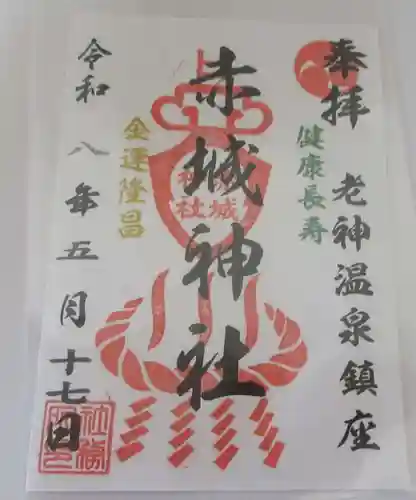 奉拝
老神温泉鎮座
健康長寿
赤城神社
赤城神社
金運隆昌
令和八年五月十七日